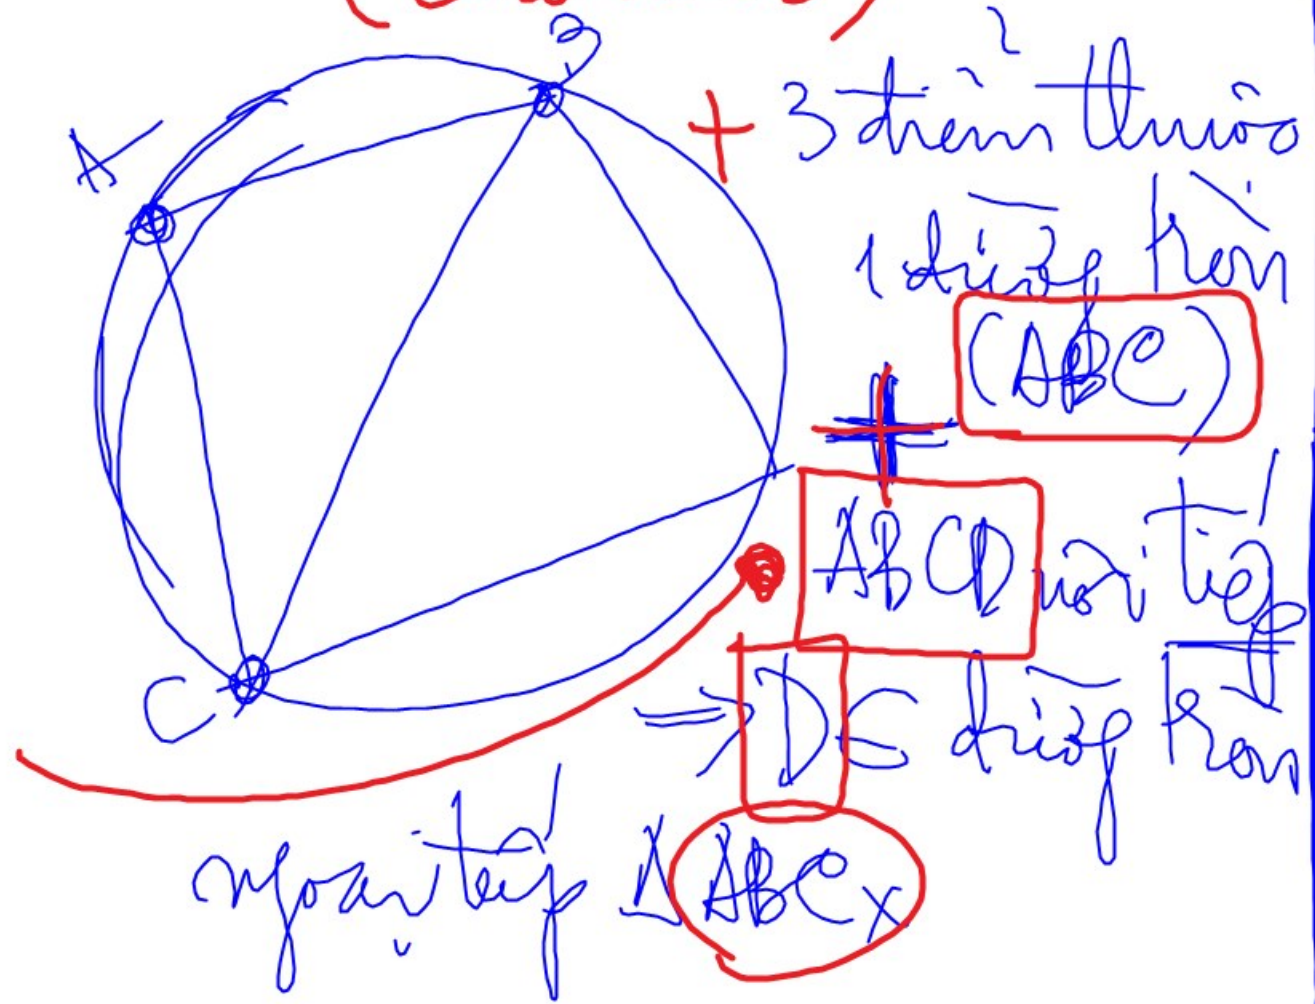 B
A
+ 3 điểm thuộc
1 đường tròn
(ABC)
+
ABCD nội tiếp
C
=> D ∈ đường tròn
ngoại tiếp Δ ABC